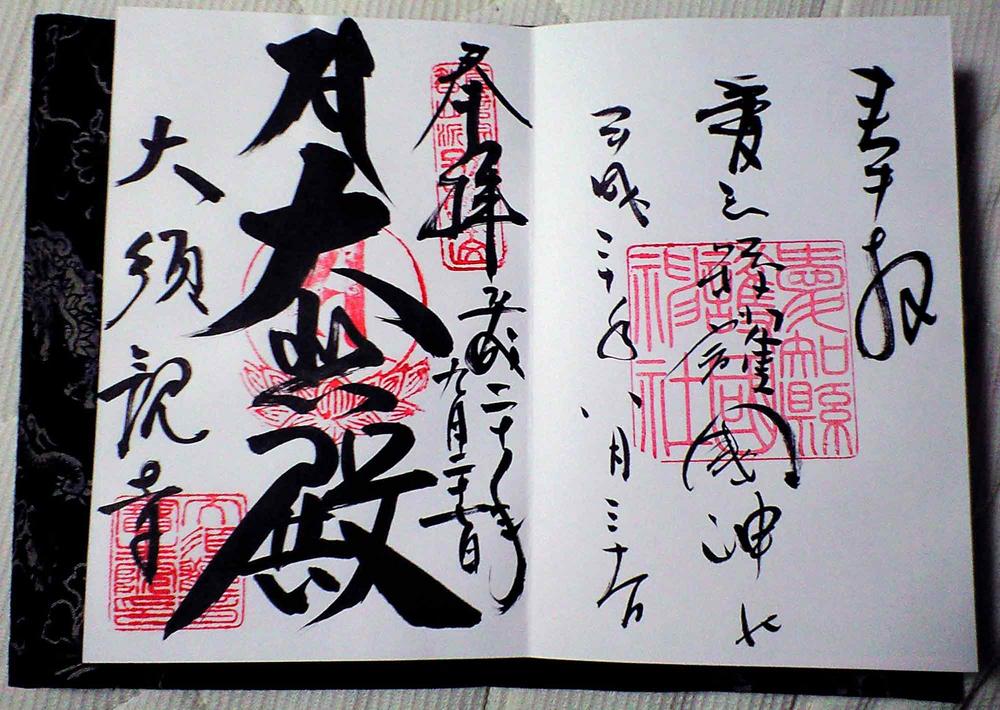 奉拝
愛知縣護國神社
愛知縣護國神社
平成二十年八月三十
奉拝
平成二十年
九月二十
大悲殿
大須観音